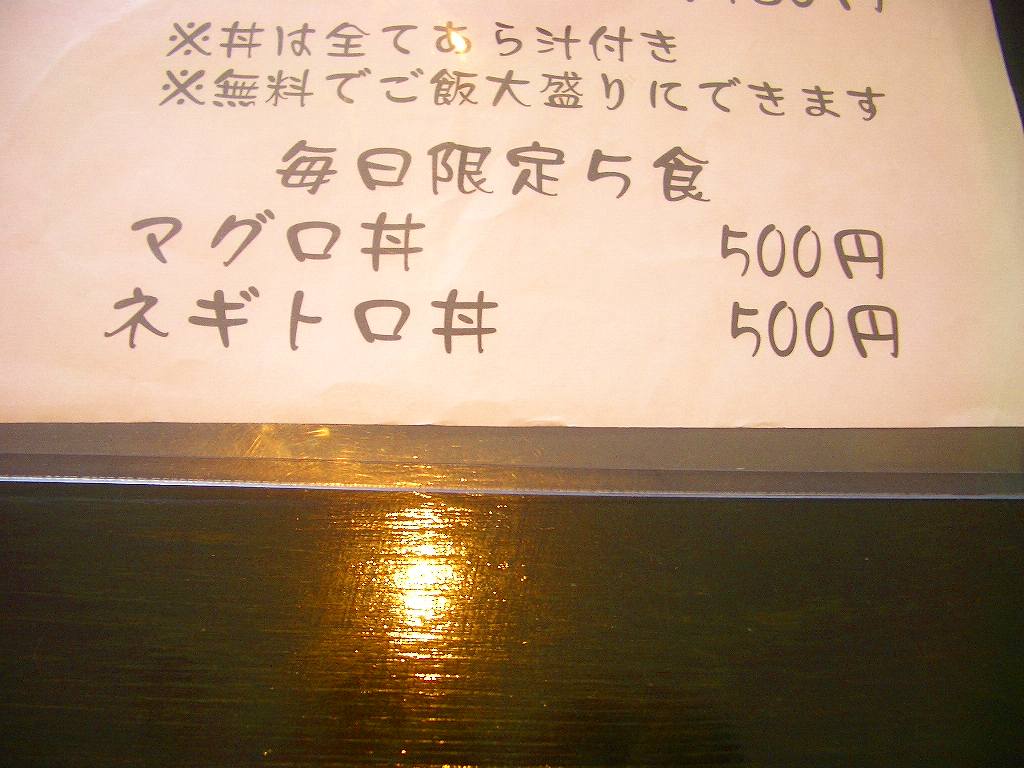 ※丼は全てあら汁付き
※無料でご飯大盛りにできます
毎日限定5食
マグロ丼 500円
ネギトロ丼 500円